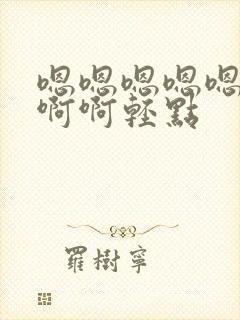 嗯嗯嗯嗯嗯
啊啊輕點
羅樹寧